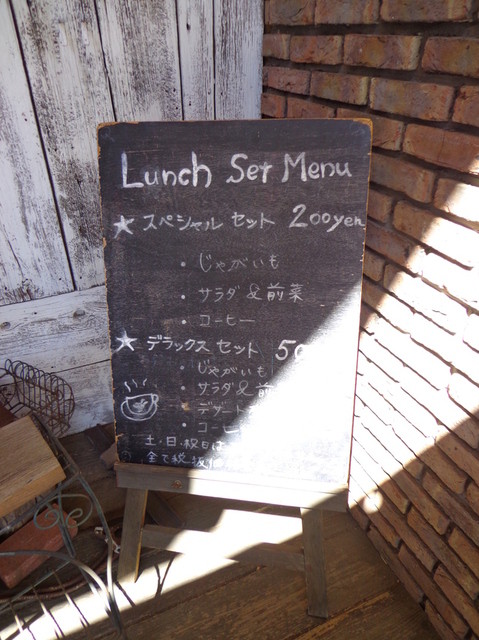 Lunch Set Menu
★ スペシャル セット 200yen
・じゃがいも
・サラダ & 前菜
・コーヒー
★ デラックス セット 50
・じゃがいも
・サラダ & 前
・デザート
・コーヒ
土・日・祝日は
全て税抜